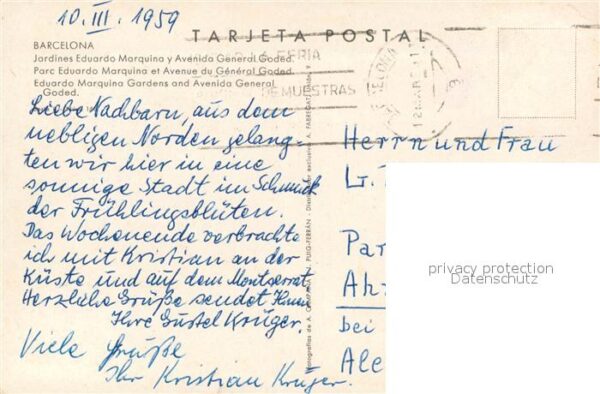 10. III. 1959
TARJETA POSTAL
BARCELONA
Jardines Eduardo Marquina y Avenida General Goded.
Parc Eduardo Marquina et Avenue du Général Goded.
Eduardo Marquina Gardens and Avenida General Goded.
FERIA
DE MUESTRAS
BARCELONA
12 MAR
Liebe Nachbarn, aus dem
nebligen Norden gelang-
ten wir hier in eine
sonnige Stadt im Schmuck
der Frühlingsblüten.
Das Wochenende verbrachte
ich mit Kristian an der
Küste und auf dem Montserrat
Herzliche Grüße sendet Ihnen
Ihre Gustel Krüger.
Viele Grüße
Ihr Kristian Krüger.
Herrn und Frau
L.
Par
Ah
bei
Ale
privacy protection
Datenschutz